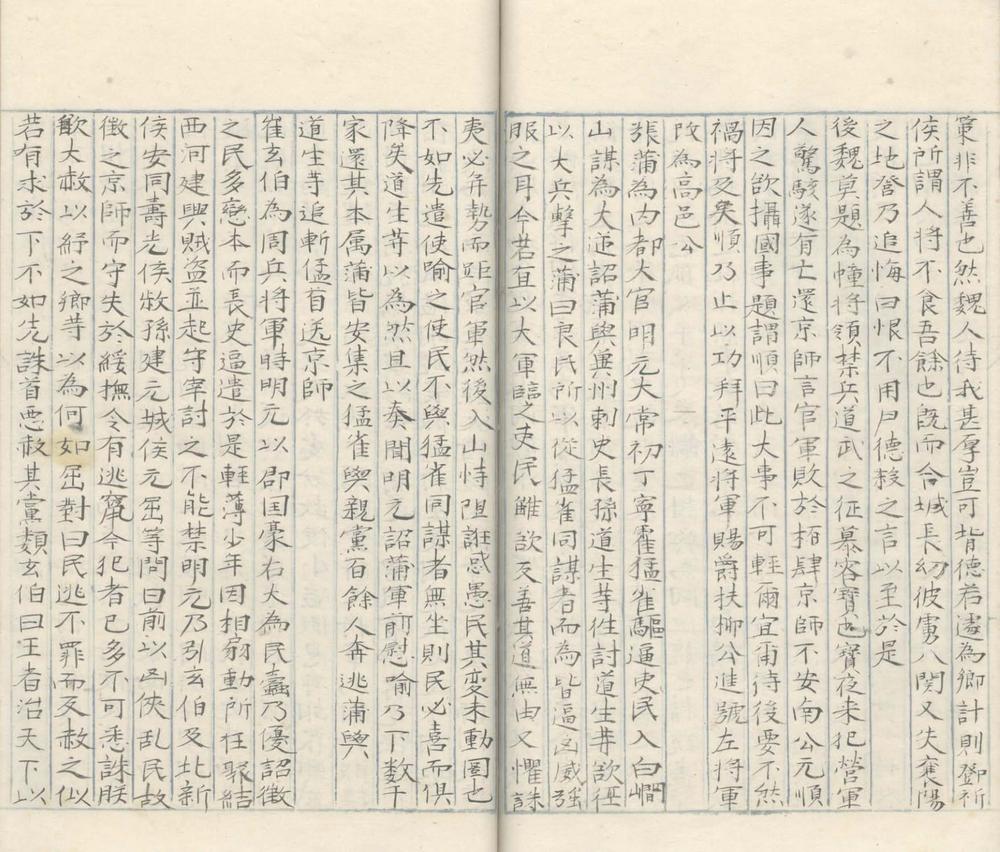 筞非不善也然魏人待我甚厚豈可背德若遂為卿計則鄧祈
侯所謂人将不食吾餘也既而合城長幼彼虜入関又失襄陽
之地詧乃追悔曰恨不用尹德毅之言以至於是
後魏莫題為幢将領禁兵道武之征慕容寳也寳夜来犯營軍
人驚駭遂有亡還京師言官軍敗於栢肆京師不安南公元順
因之欲攝國事題謂順曰此大事不可輕爾宜甫待後要不然
禍将及矣順乃止以功拜平遠将軍賜爵扶栁公進號左将軍
改為高邑公
張蒲為内都大官明元大常初丁寧霍猛雀驅逼吏民入白㵎
山謀為大逆詔蒲與兾州刺史長孫道生䓁徃討道生䓁欲徑
以大兵擊之蒲曰良民所以從猛雀同謀者而為皆逼凶威强
服之耳今若直以大軍臨之吏民雖欲反善其道無由又懼誅
夷必并勢而距官軍然後入山恃阻誑惑愚民其変未動圖也
不如先遣使喻之使民不與猛雀同謀者無坐則民必喜而俱
降矣道生䓁以為然且以奏聞明元詔蒲軍前慰喻乃下数千
家還其本属蒲皆安集之猛雀與親黨百餘人奔逃蒲與
道生䓁追斬猛首送京師
崔玄伯為周兵将軍時明元以郡国豪右大為民蠹乃優詔徴
之民多戀本而長史逼遣於是輕薄少年因相扇動所在聚結
西河建興賊盗並起守宰討之不能禁明元乃引玄伯及北新
侯安同壽光侯敘孫建元城侯元屈等問曰前以凶俠乱民故
徴之京師而守失於綏撫令有逃竄今犯者已多不可悉誅朕
歓大赦以紓之卿䓁以為何如屈對曰民逃不罪而反赦之似
若有求於下不如先誅首悪赦其黨類玄伯曰王者治天下以